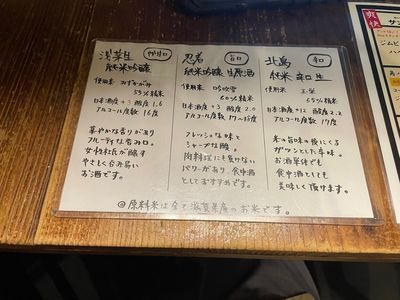 浅茅生
純米吟醸
使用米 みずかがみ
55%精米
日本酒度 +3 酸度 1.6
アルコール度数 16度
華やかな香りがあり
フルーティな含み口。
女性杜氏が醸す
やさしく呑み易い
お酒です。
忍者 旨口
純米吟醸 生原酒
使用米 吟吹雪
60%精米
日本酒度 +3 酸度 2.0
アルコール度数 17〜18度
フレッシュな味と
シャープな酸。
肉料理にも負けない
パワーがあり、食中酒
としておすすめです。
北島 辛口
純米 辛口 生
使用米 玉栄
65%精米
日本酒度 +12 酸度 2.2
アルコール度数 17度
米の旨味の後にくる
ガツンとした辛味。
お酒単体でも
食中酒としても
美味しく頂けます。
◎原料米は全て滋賀県産のお米です。
爽快
ジムビ
ハイ